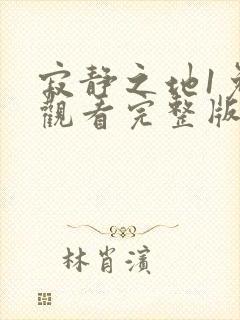 寂静之地1
觀看完整版
林肖濱